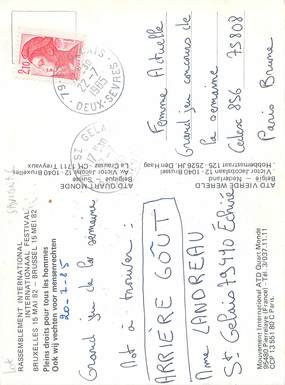 RASSEMBLEMENT INTERNATIONAL
INTERNATIONAAL FESTIVAL
BRUXELLES 15 MAI 82 — BRUSSEL 15 MEI 82
Pleins droits pour tous les hommes
Ook wij vechten voor mensenrechten
20-7-85
Grand jeu de la semaine
Mot à trouver :
ARRIÈRE GOUT
Mme LANDREAU
St Gelais 79410 Echiré
Mouvement International ATD Quart Monde
95480 Pierrelaye (France) Tél. 3/037.11.11
CCP 13.551.80 J Paris.
ATD QUART MONDE
Av. Victor Jacobs 12 - 1040 Bruxelles
Belgique - Suisse
La Crausaz - CH 1711 Treyvaux
ATD VIERDE WERELD
Victor Jacobslaan 12 - 1040 Brussel
België - Nederland
Hobbemastraat 125 - 2526 JH. Den Haag
79
22-7
1985
DEUX-SEVRES
2,10
Femme Actuelle
Grand jeu concours de
la semaine
Cedex 856 75808
Paris Brune